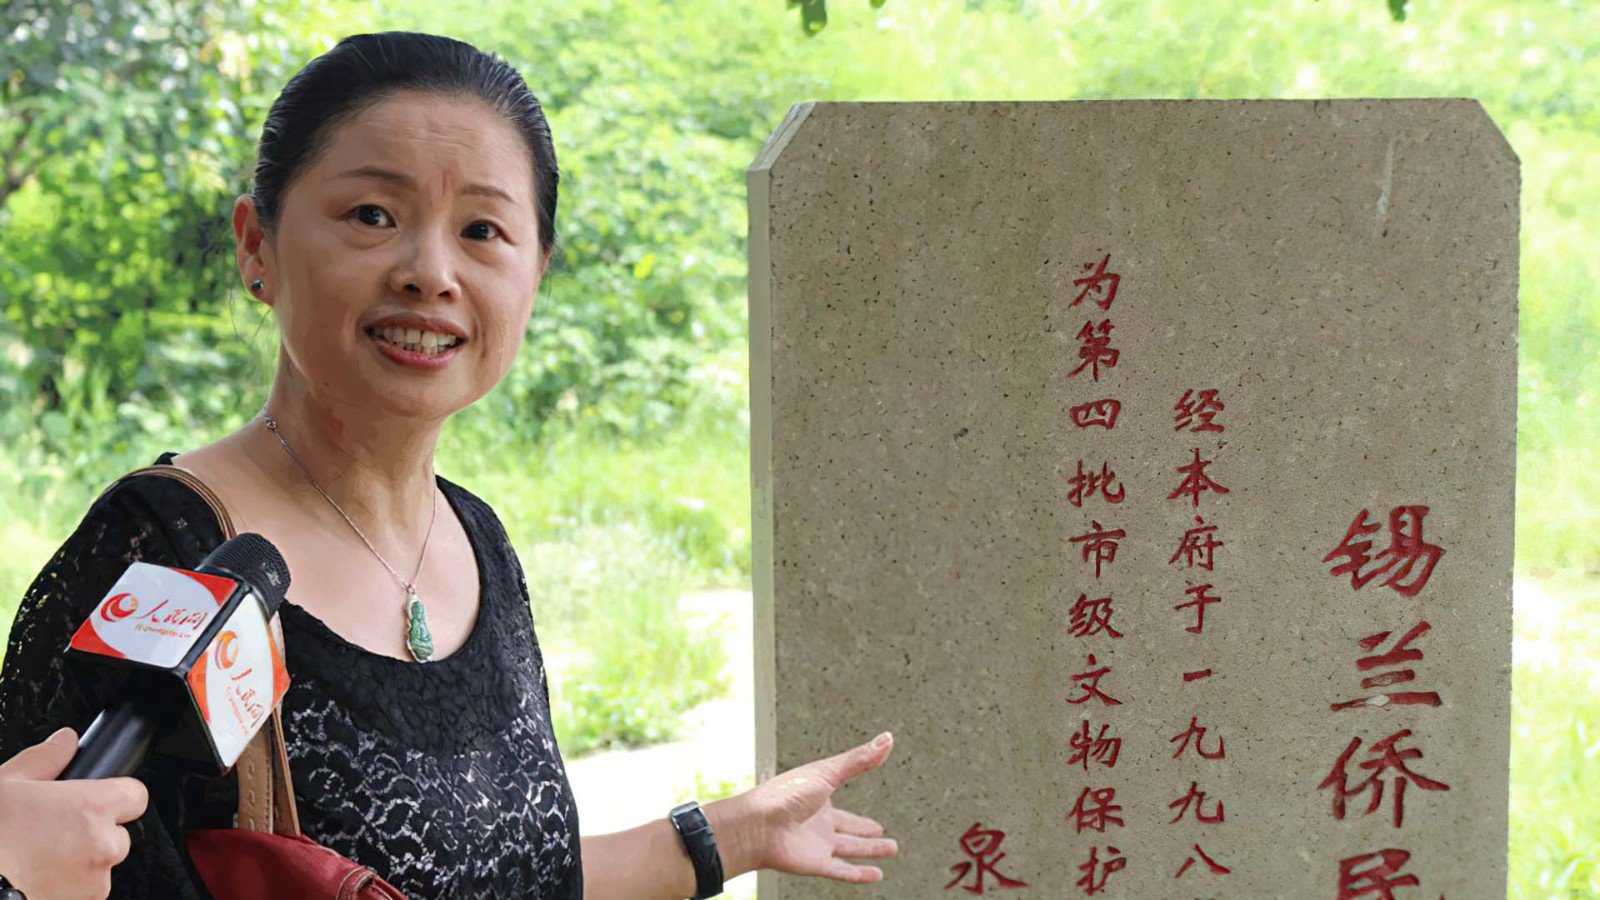 锡兰侨民
经本府于一九九八
为第四批市级文物保护
泉
人民网
人民网